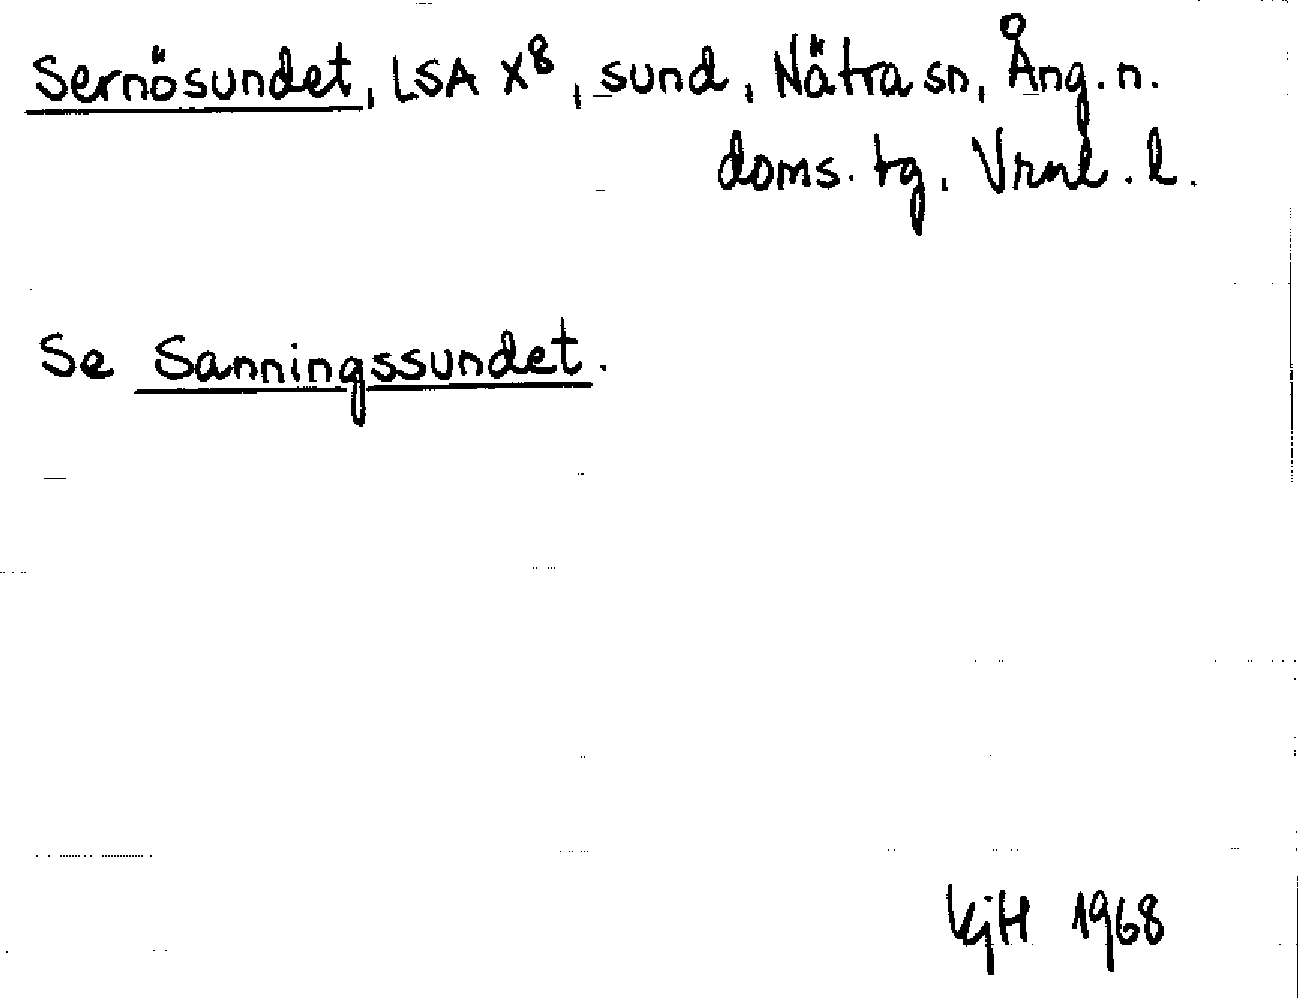 Sernösundet, LSA X⁸, sund, Nätra sn, Ång. n.
doms. tg, Vrnl. l.
Se Sanningssundet.
KjH 1968